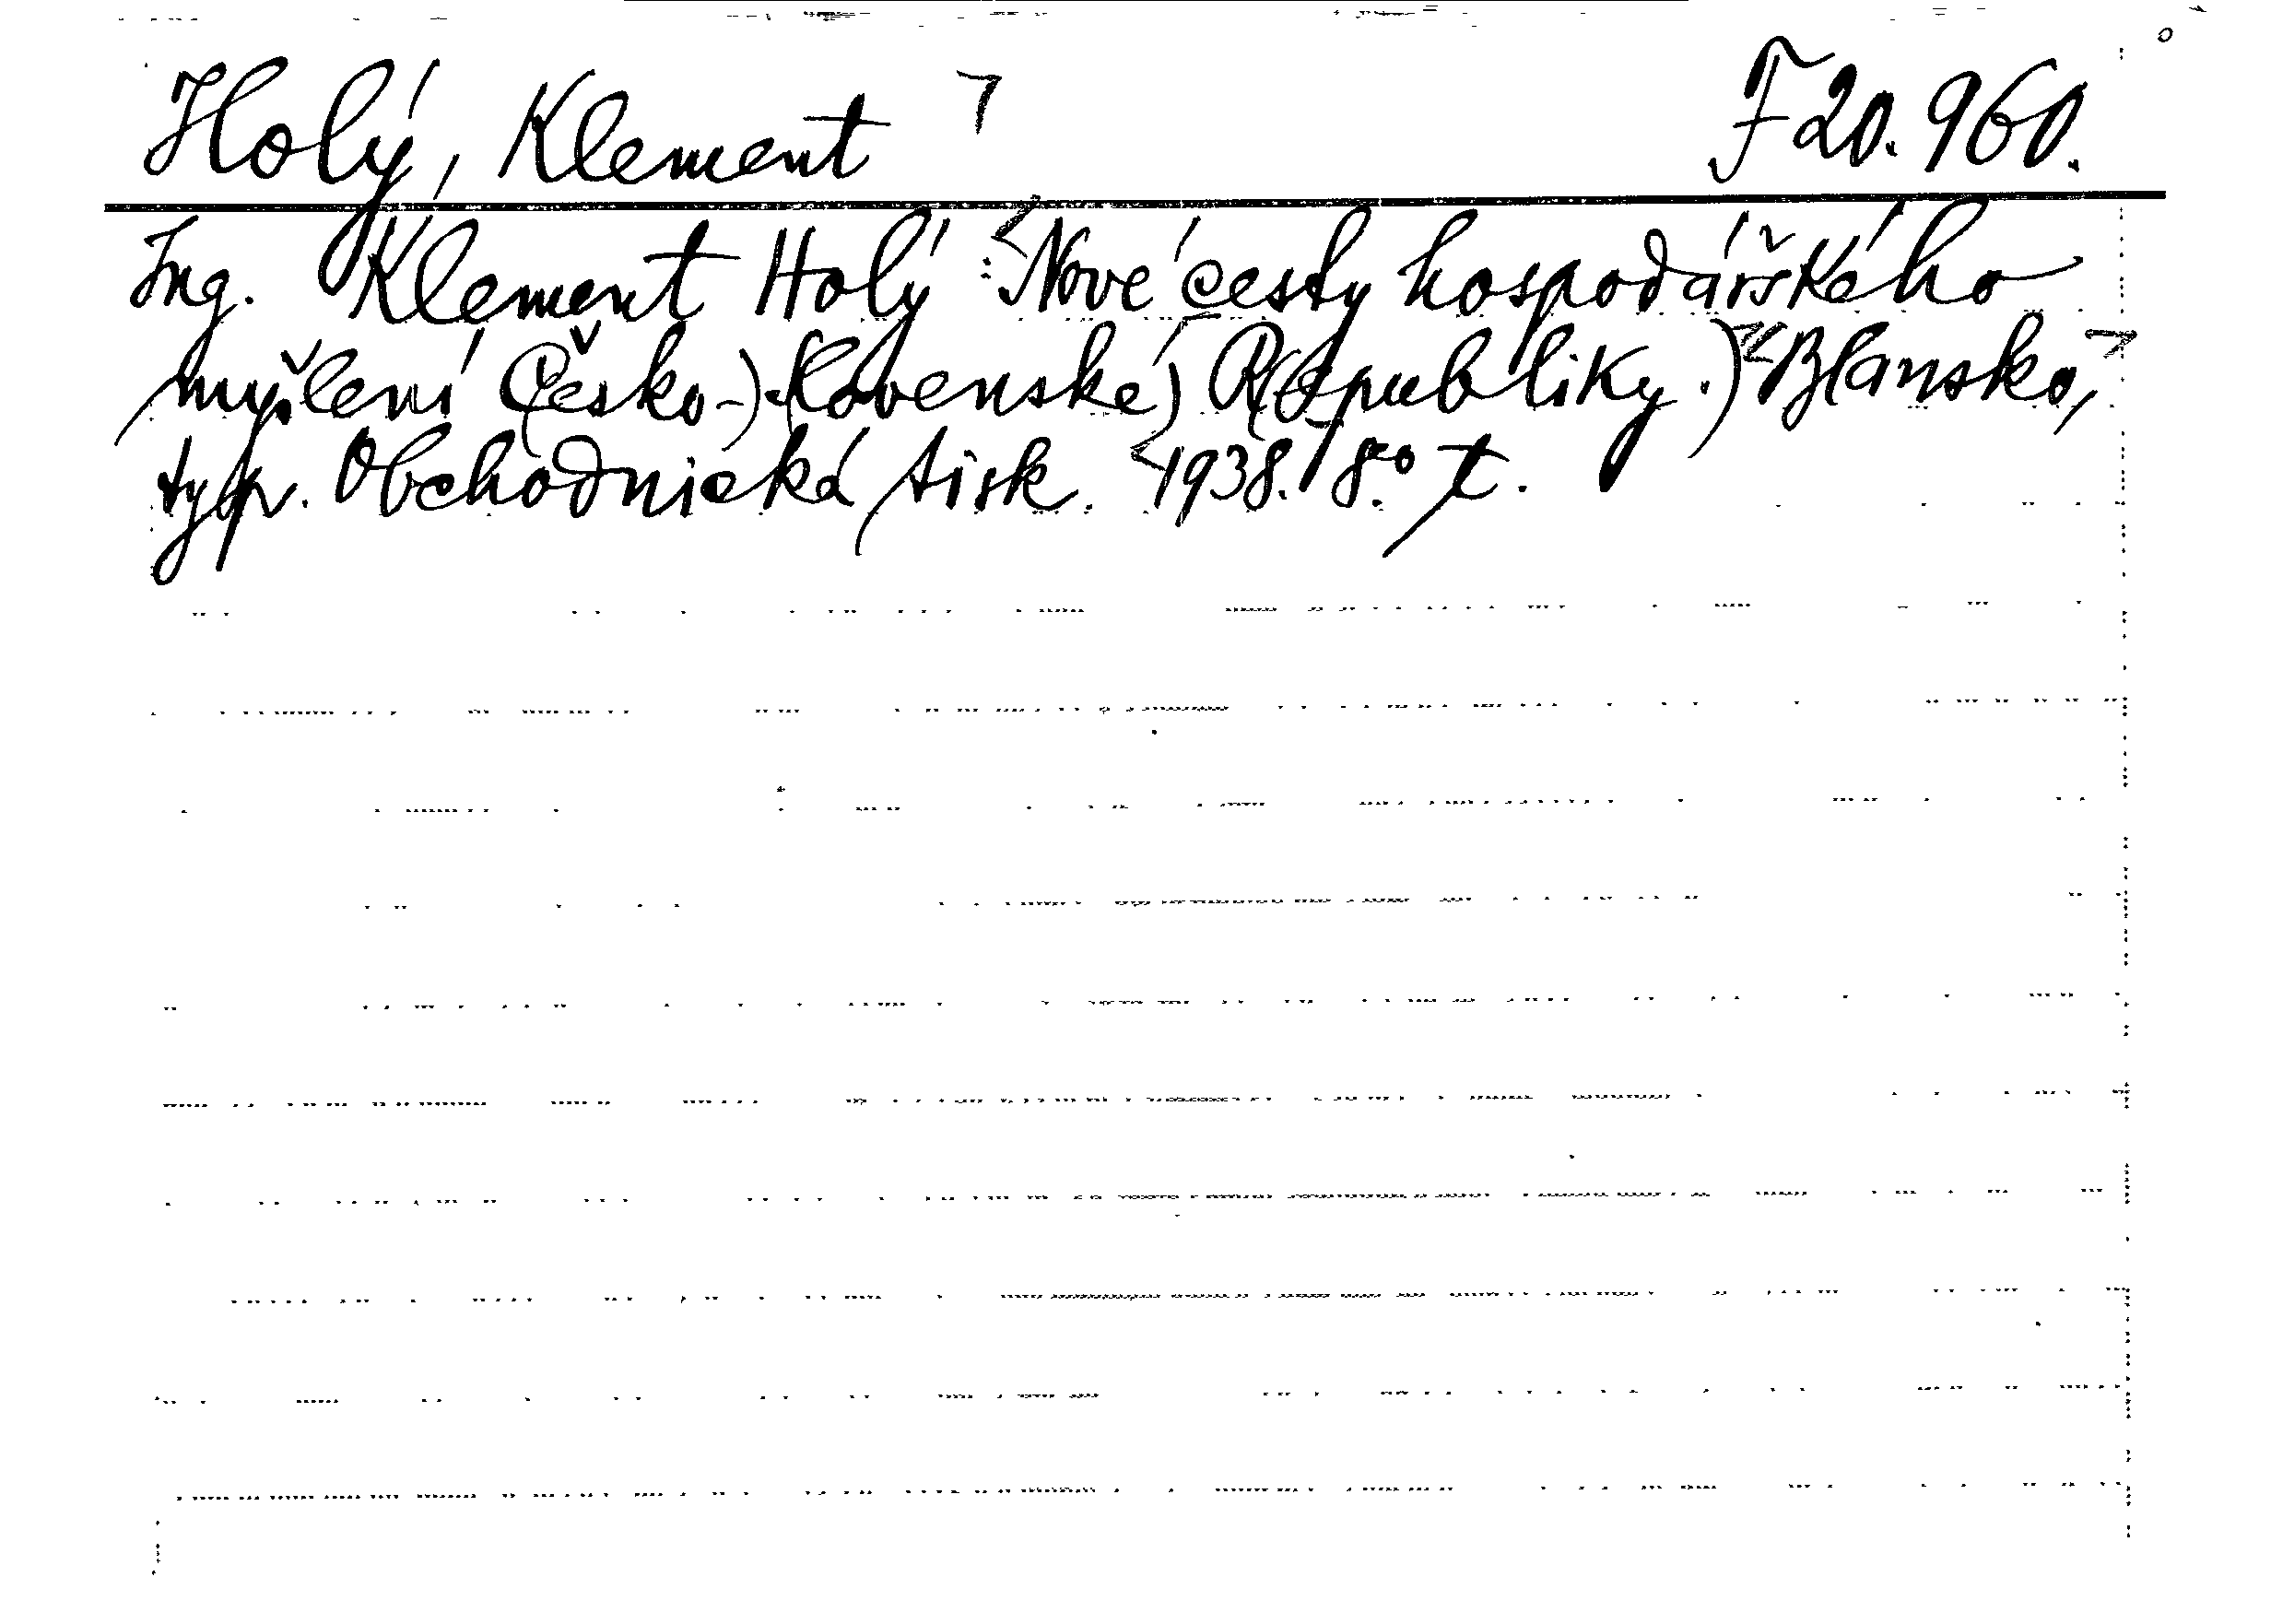 Holý, Klement F 20.960.
Ing. Klement Holý: Nové cesty hospodářského
myšlení Č(esko-)S(lovenské) R(epubliky.) Blansko,
typ. Obchodnická tisk. 1938. 8.° t.